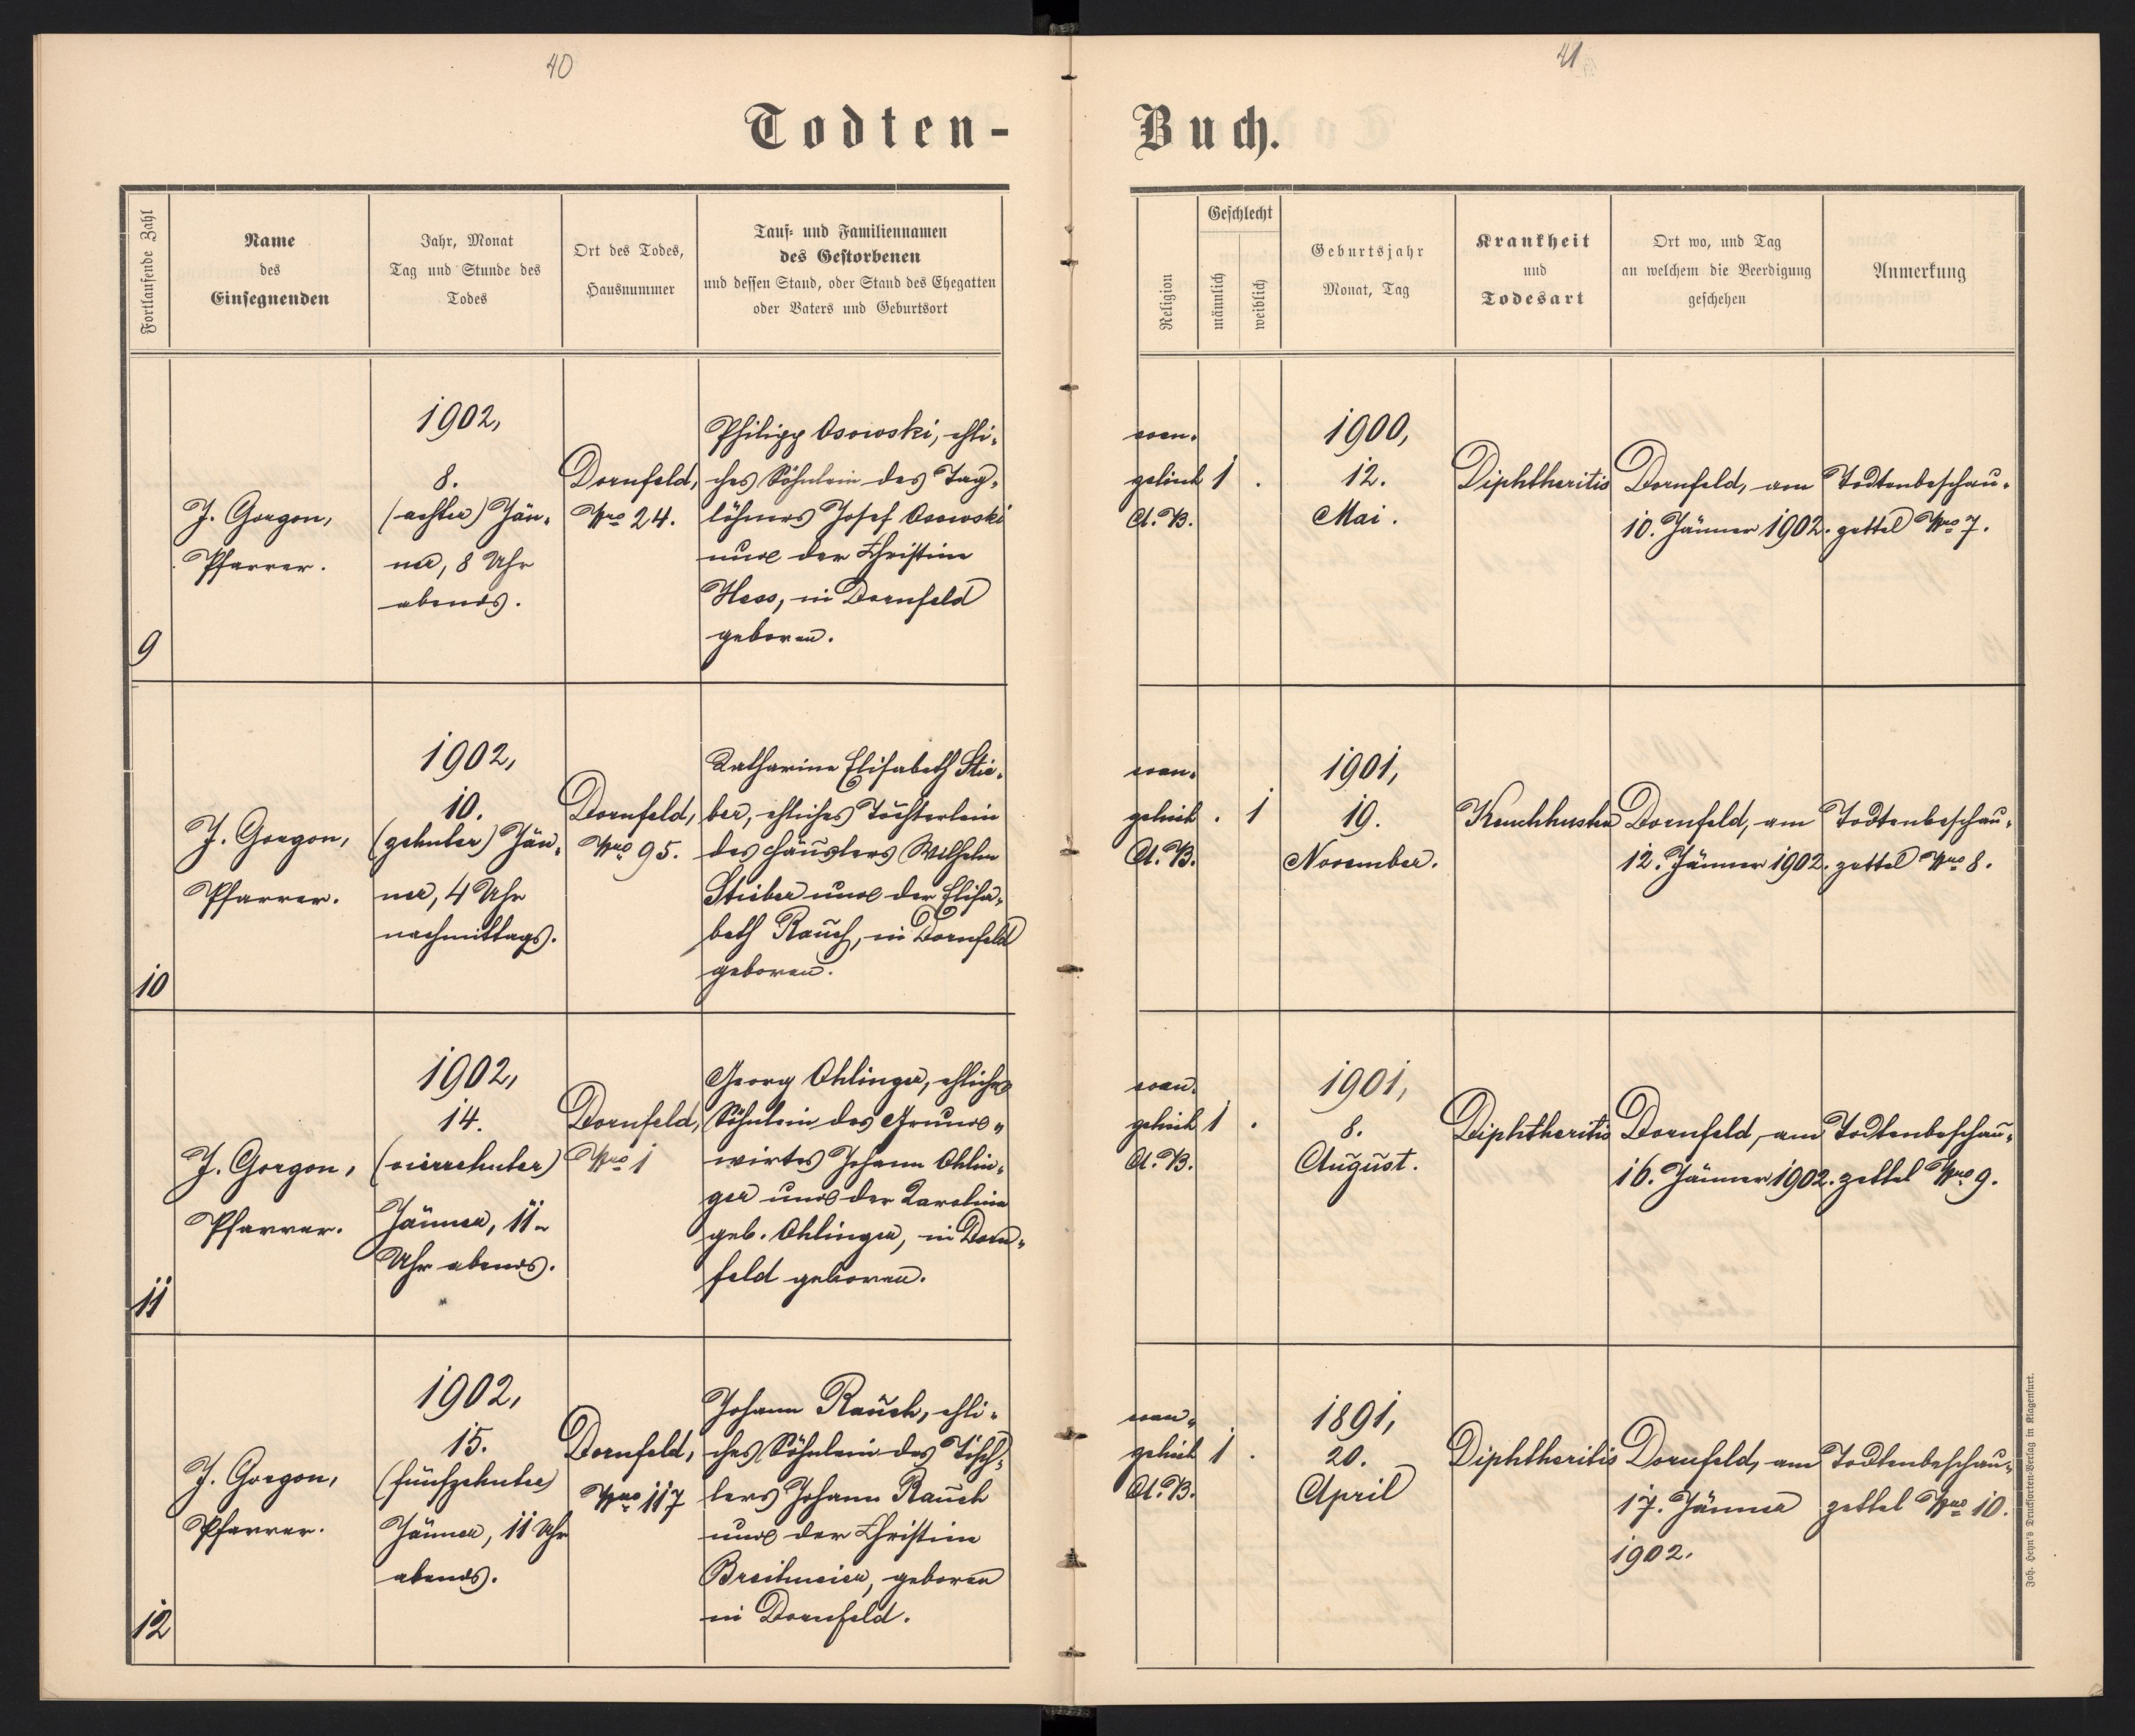 40
41
Todten-
Buch.
Fortlaufende Zahl
Name
des
Einsegnenden
Jahr, Monat
Tag und Stunde des
Todes
Ort des Todes,
Hausnummer
Tauf- und Familiennamen
des Gestorbenen
und dessen Stand, oder Stand des Ehegatten
oder Vaters und Geburtsort
Religion
Geschlecht
männlich
weiblich
Geburtsjahr
Monat, Tag
Krankheit
und
Todesart
Ort wo, und Tag
an welchem die Beerdigung
geschehen
Anmerkung
9
J. Gorgon,
Pfarrer.
1902,
8.
(achter) Jän-
ner, 8 Uhr
abends.
Dornfeld,
Nro 24.
Philipp Osowski, ehli-
ches Söhnlein des Tag-
löhners Josef Osowski
und der Christine
Hess, in Dornfeld
geboren.
evan-
gelisch
A. B.
1 .
1900,
12.
Mai.
Diphtheritis
Dornfeld, am
10. Jänner 1902.
Todtenbeschau-
zettel Nro 7.
10
J. Gorgon,
Pfarrer.
1902,
10.
(zehnter) Jän-
ner, 4 Uhr
nachmittags.
Dornfeld,
Nro 95.
Katharine Elisabeth Stie-
ber, ehliches Töchterlein
des Häuslers Wilhelm
Stieber und der Elisa-
beth Rauch, in Dornfeld
geboren.
evan-
gelisch
A. B.
. 1
1901,
19.
November.
Keuchhusten
Dornfeld, am
12. Jänner 1902.
Todtenbeschau-
zettel Nro 8.
11
J. Gorgon,
Pfarrer.
1902,
14.
(vierzehnter)
Jänner, 11
Uhr abends.
Dornfeld,
Nro 1
Georg Ohlinger, ehliches
Söhnlein des Grund-
wirtes Johann Ohlin-
ger und der Karolina
geb. Ohlinger, in Dorn-
feld geboren.
evan-
gelisch
A. B.
1 .
1901,
8.
August.
Diphtheritis
Dornfeld, am
16. Jänner 1902.
Todtenbeschau-
zettel Nro 9.
12
J. Gorgon,
Pfarrer.
1902,
15.
(fünfzehnter)
Jänner, 11 Uhr
abends.
Dornfeld,
Nro 117
Johann Rauch, ehli-
ches Söhnlein des Tisch-
lers Johann Rauch
und der Christine
Breitmeier, geboren
in Dornfeld.
evan-
gelisch
A. B.
1 .
1891,
20.
April
Diphtheritis
Dornfeld, am
17. Jänner
1902.
Todtenbeschau-
zettel Nro 10.
Joh. Heyn's Drucksorten-Verlag in Klagenfurt.